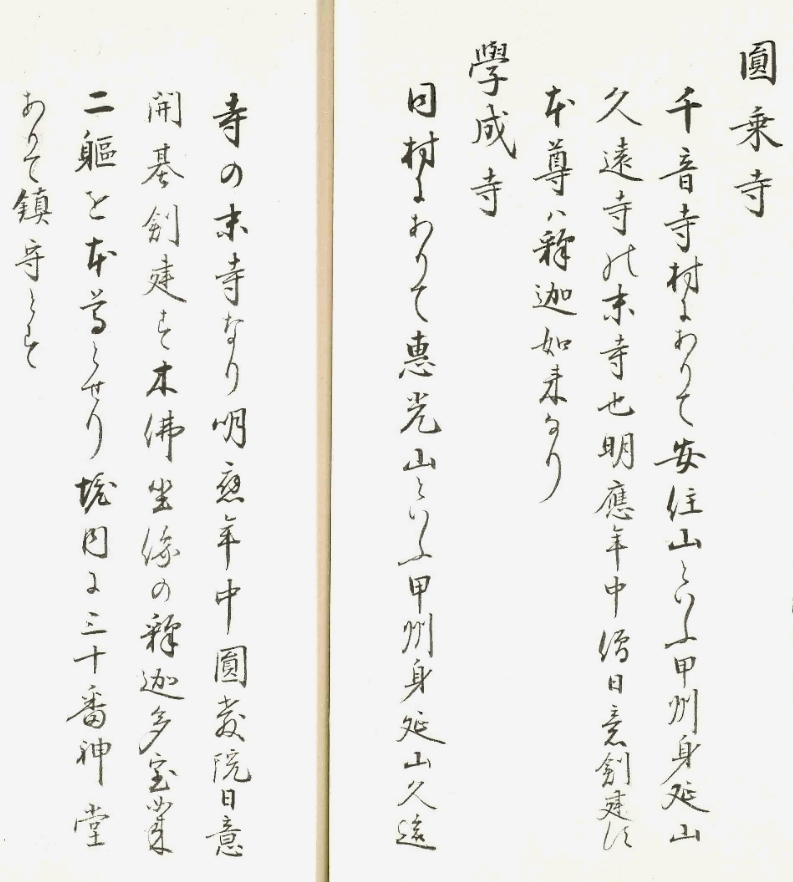 圓乗寺
千音寺村にありて安住山といふ甲州身延山
久遠寺の末寺也明應年中僧日意創建す
本尊ハ釋迦如来なり
學成寺
同村にありて惠光山といふ甲州身延山久遠
寺の末寺なり明應年中圓教院日意
開基創建す木佛坐像の釋迦多宝
二軀を本尊とせり境内に三十番神堂
ありて鎮守とす